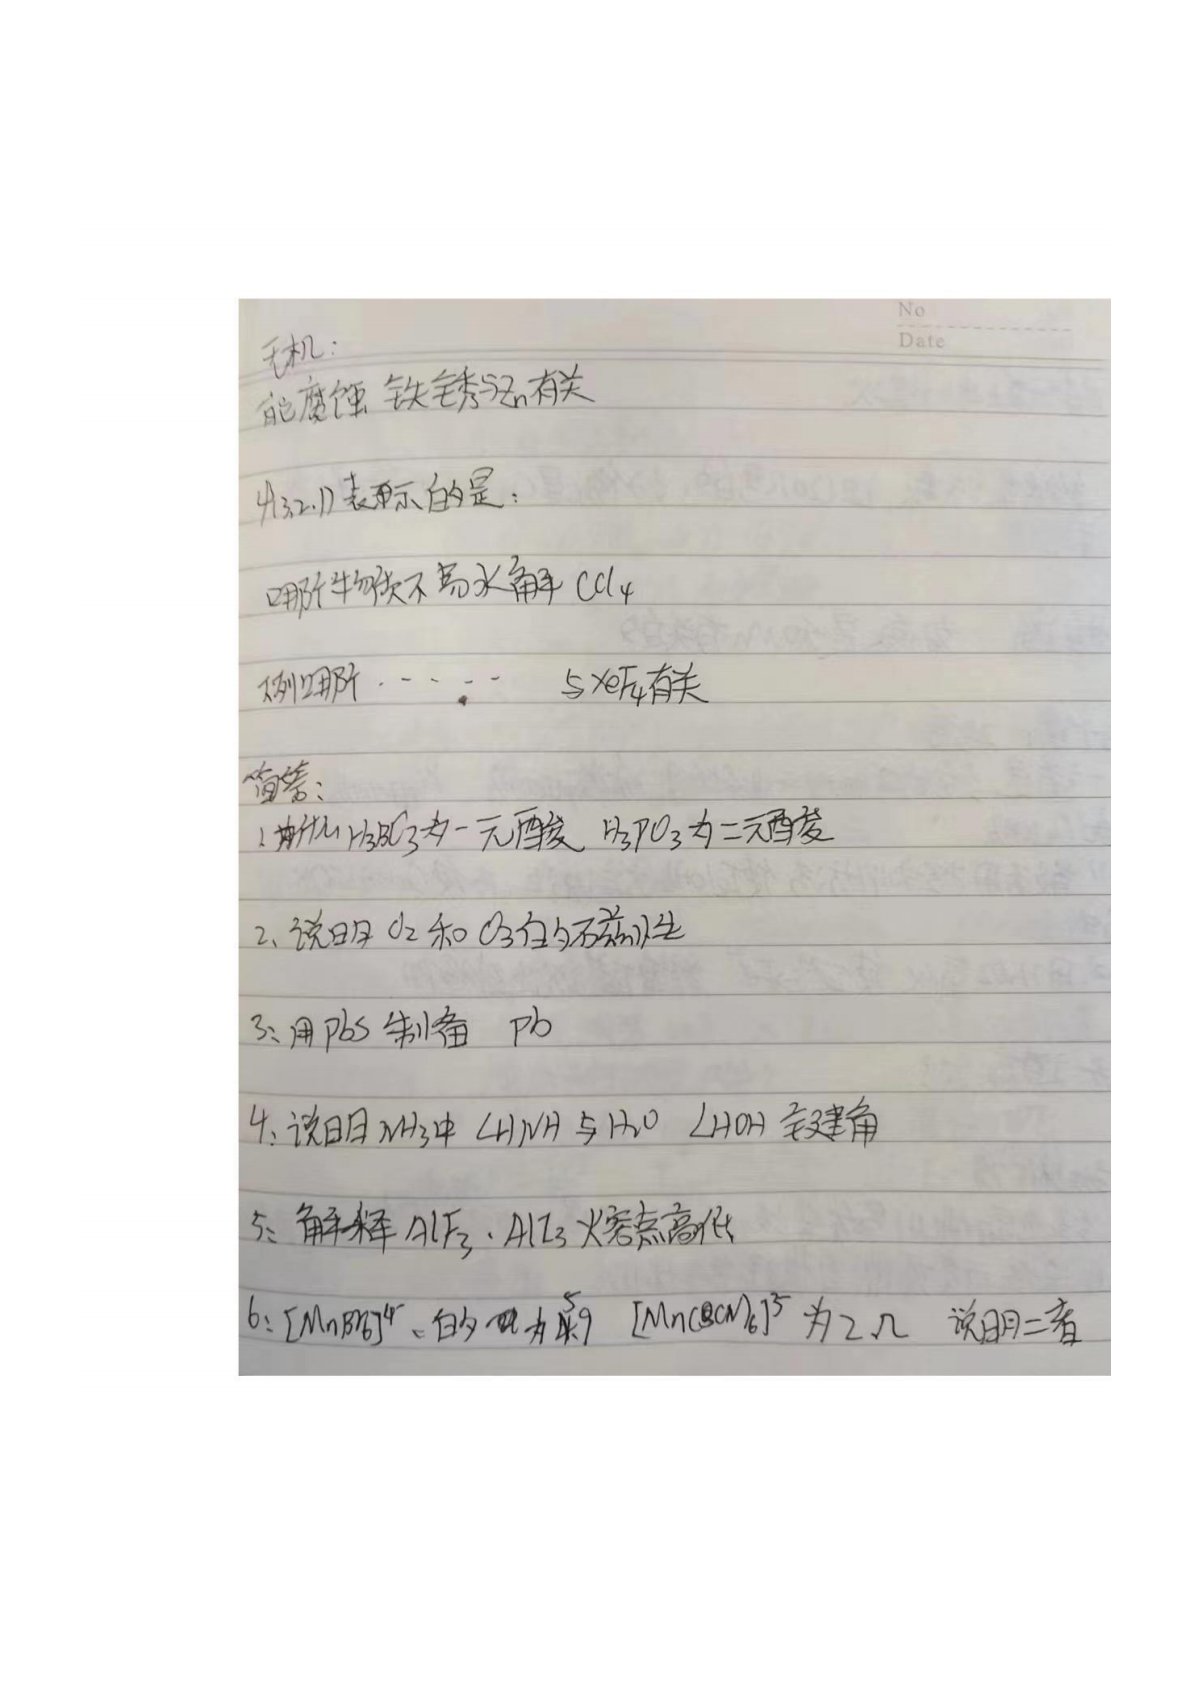 No
Date
无机:
能腐蚀 铁锈与Zn有关
4(3.2.1)表示的是:
哪所物质不易水解 CCl4
下列哪所 ····· 与XeF4有关
简答:
1.为什么H3BO3为一元酸 H3PO3为二元酸
2、说明 O2 和 O3的磁性
3、用PbS 制备 Pb
4、说明NH3中 ∠HNH与H2O ∠HOH 键角
5、解释 AlF3、AlI3 火容点高低
6、[MnBr6]4-、的 为 5.9 [Mn(CN)6]3- 为2.Ω 说明二者